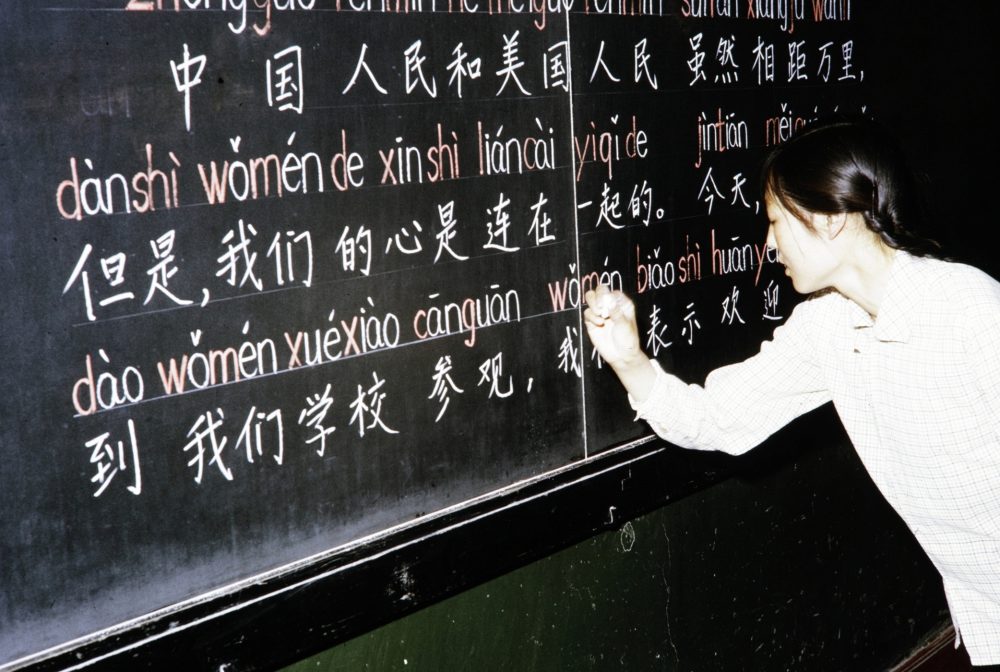 Zhongguo renmin he meiguo renmin suiran xiangju wanli
中国人民和美国人民虽然相距万里,
dànshì wǒmén de xīnshì liáncài yìqǐde jīntiān měi
但是,我们的心是连在一起的。今天,
dào wǒmén xuéxiào cānguān wǒmén biǎoshì huān
到我们学校参观,我 表示欢迎